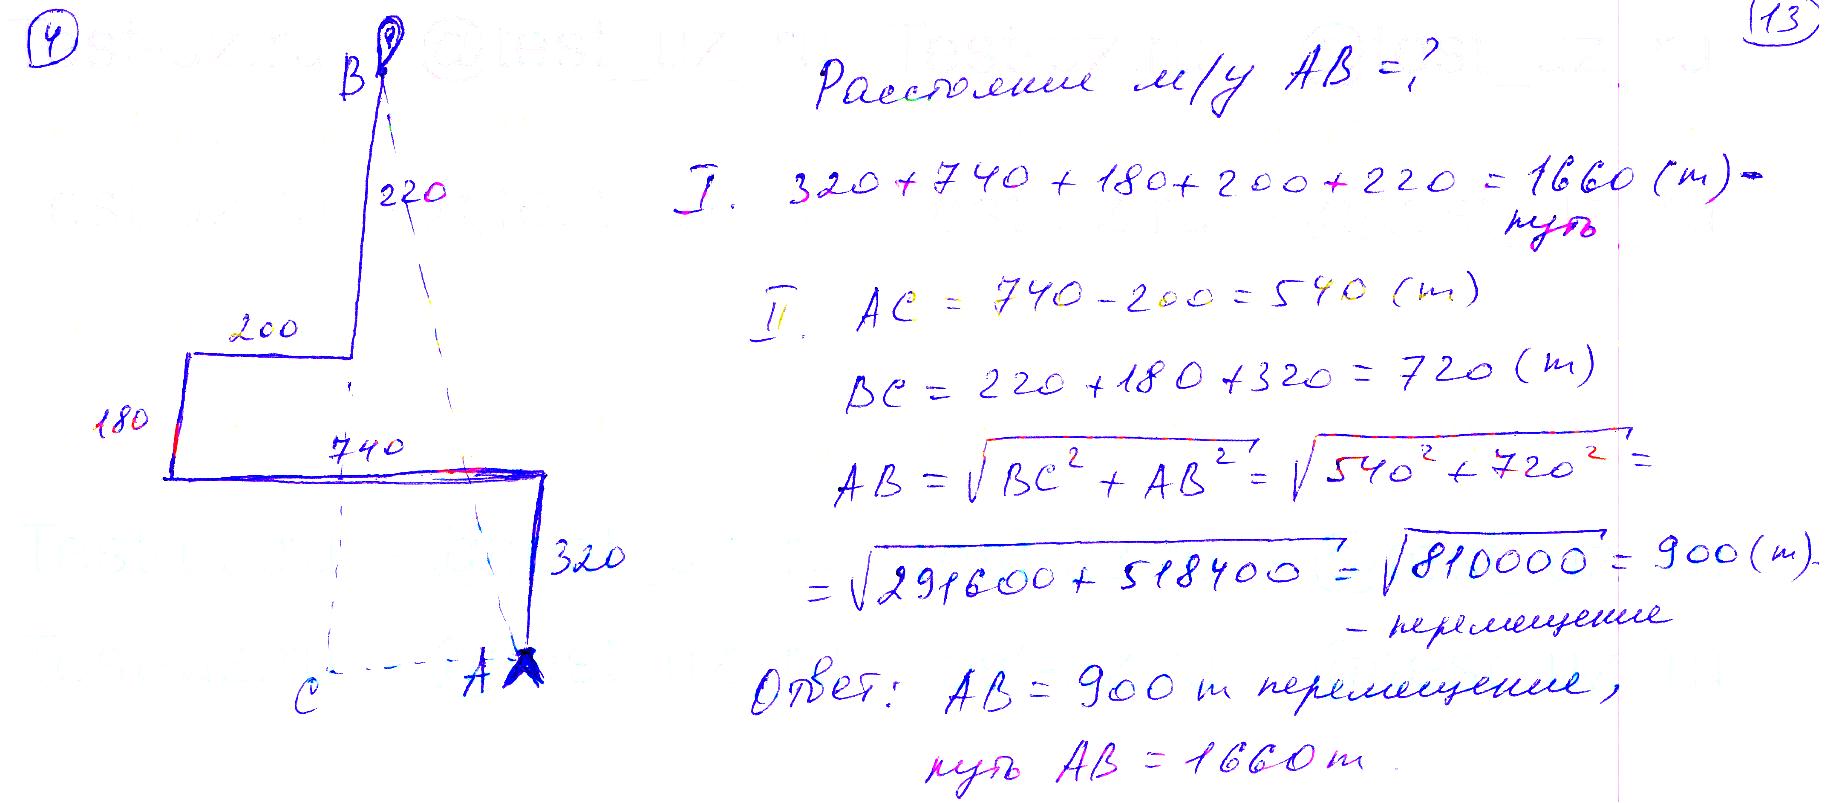 4
13
B
Расстояние м/у AB = ?
220
I. 320 + 740 + 180 + 200 + 220 = 1660 (m) -
путь
II. AC = 740 - 200 = 540 (m)
200
BC = 220 + 180 + 320 = 720 (m)
180
740
AB = √BC² + AB² = √540² + 720² =
320
= √291600 + 518400 = √810000 = 900 (m) -
- перемещение
C
A
Ответ: AB = 900 m перемещение,
путь AB = 1660 m